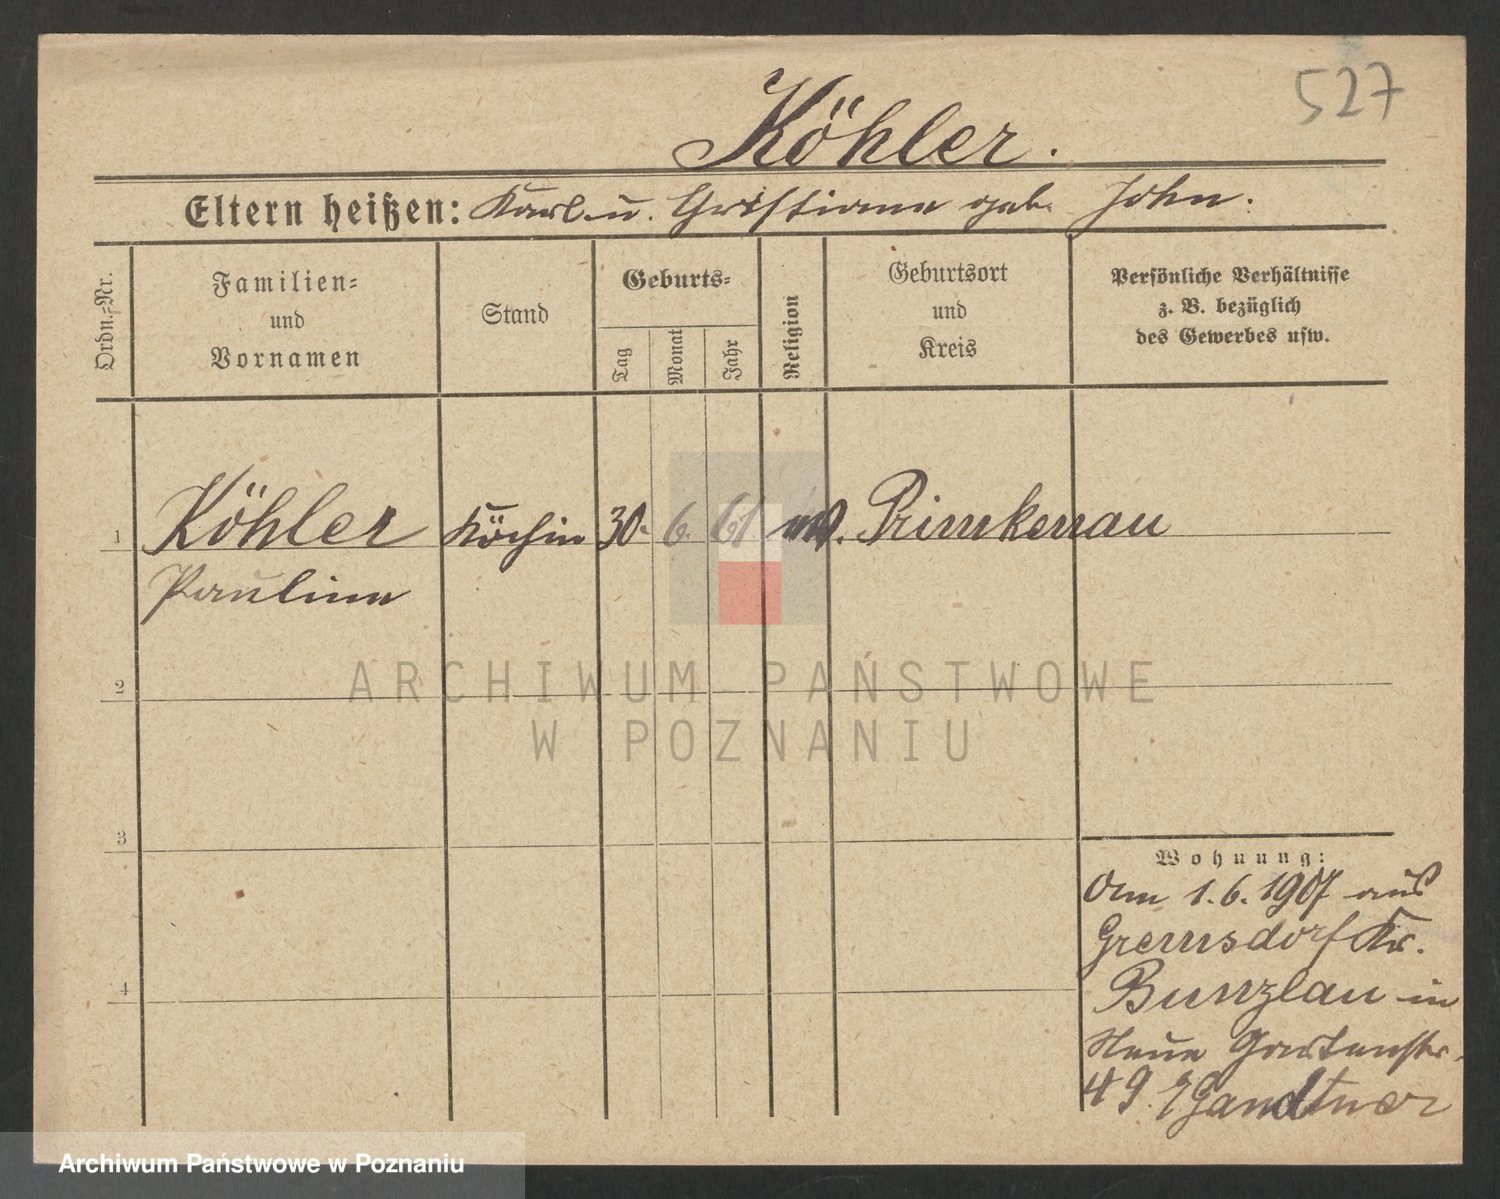 527
Köhler.
Eltern heißen: Karl u. Christiane geb. John.
Ordn.-Nr.
Familien-
und
Vornamen
Stand
Geburts-
Tag
Monat
Jahr
Religion
Geburtsort
und
Kreis
Persönliche Verhältnisse
z. B. bezüglich
des Gewerbes usw.
1 Köhler Köchin 30. 6. 61. Primkenau
Pauline
2
3
4
Wohnung:
Am 1.6.1907 aus
Gremsdorf Kr.
Bunzlau in
Neue Gartenstr.
49
ARCHIWUM PAŃSTWOWE
W POZNANIU
Archiwum Państwowe w Poznaniu